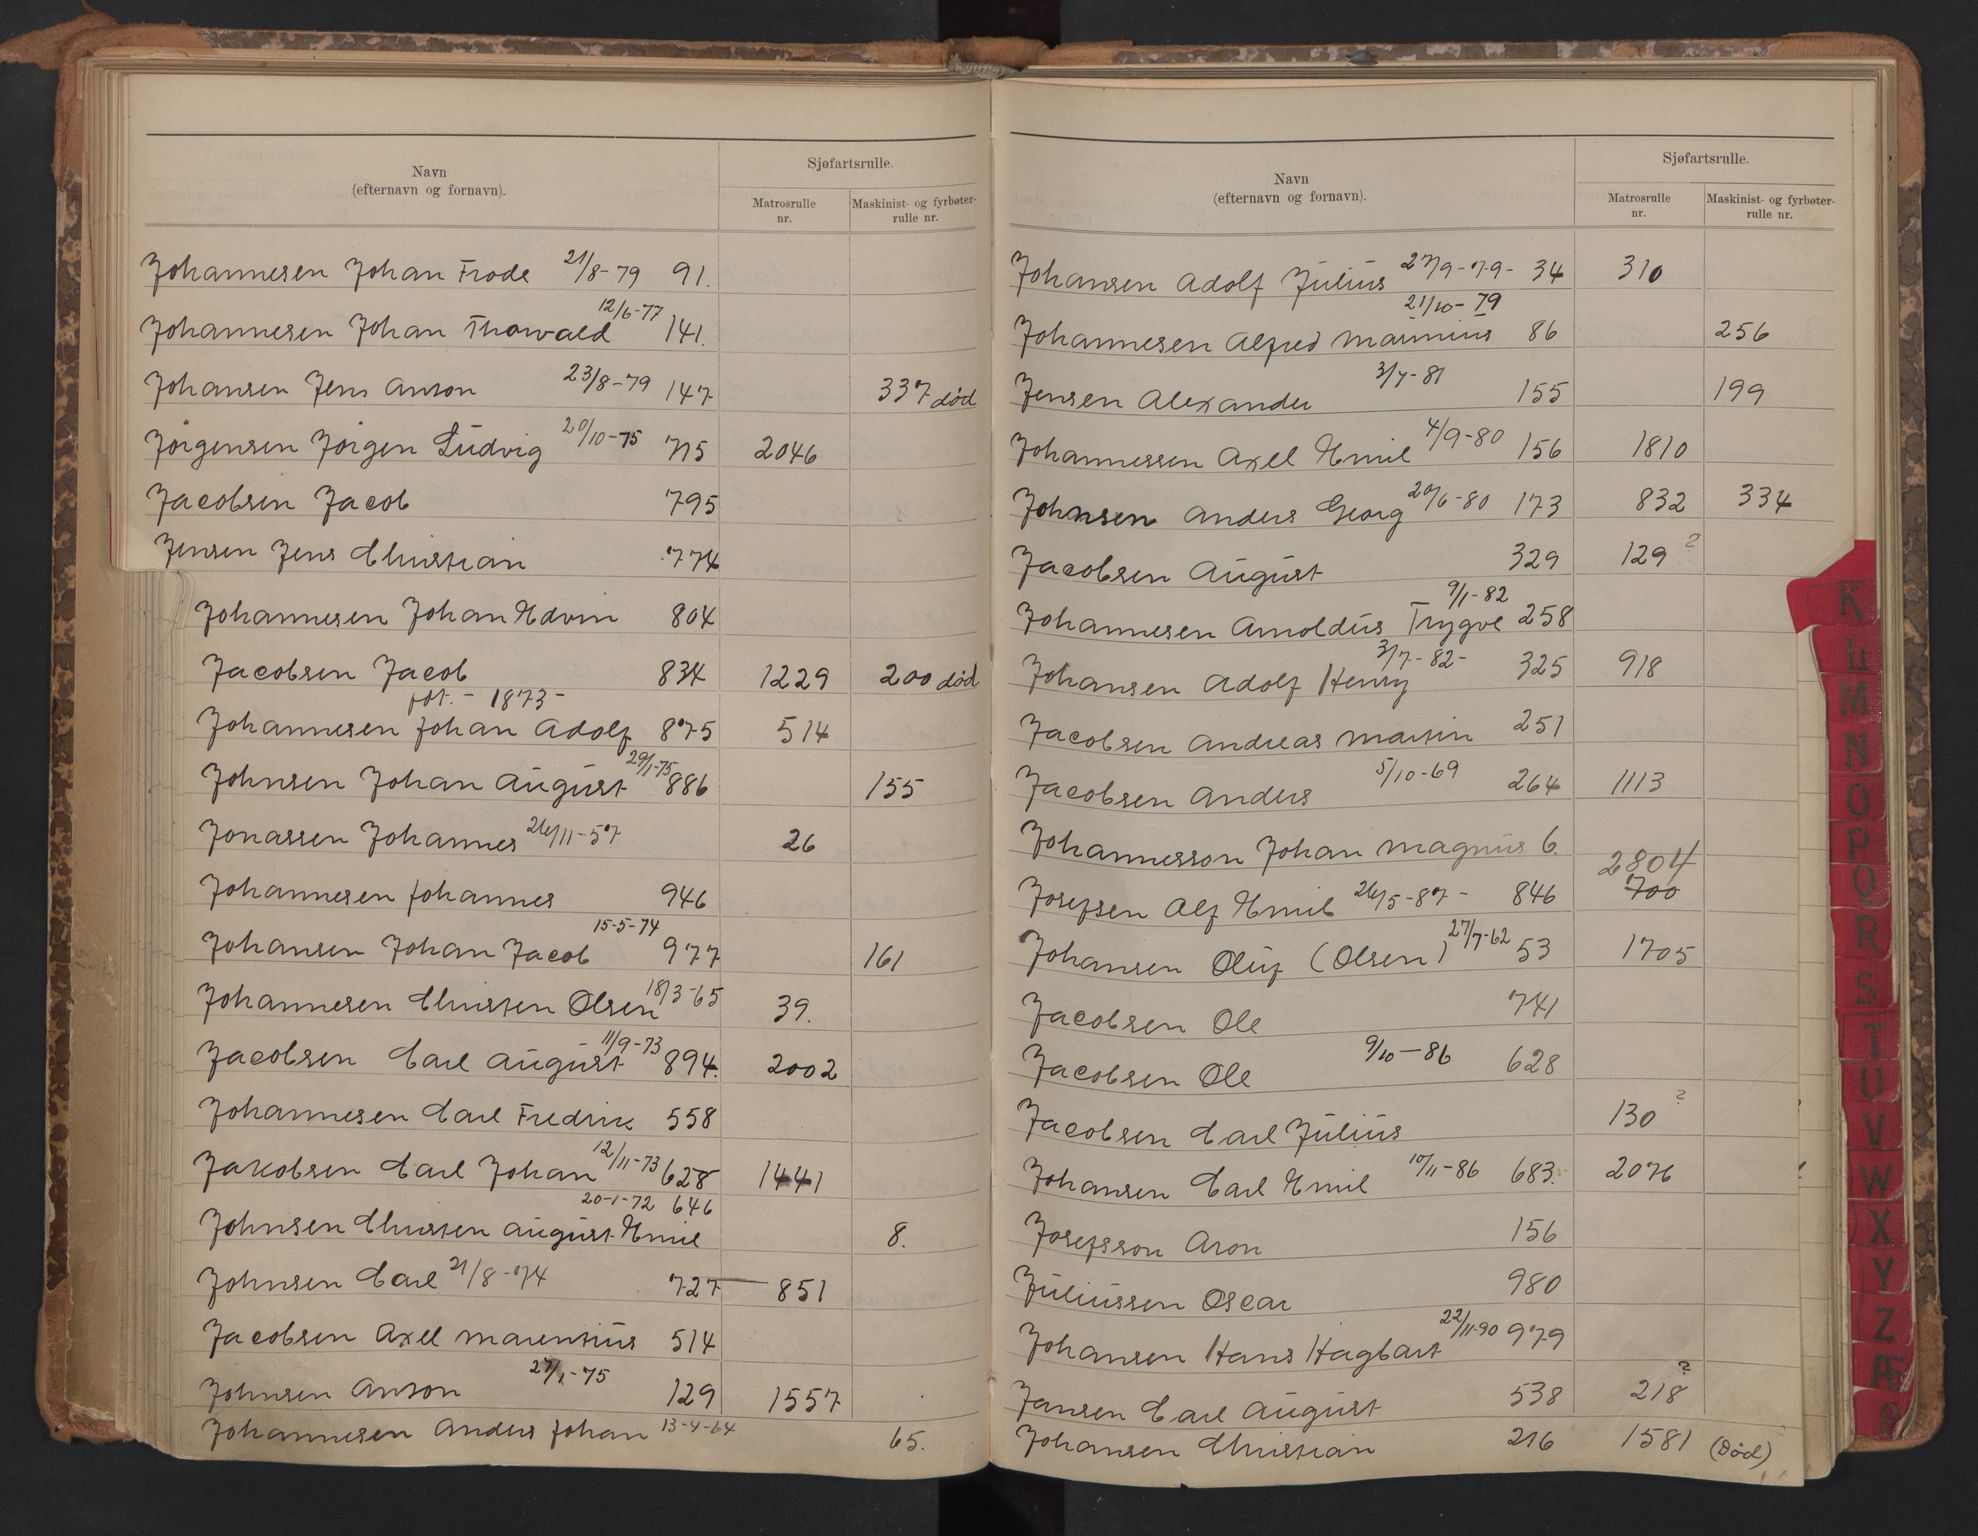 Navn
(efternavn og fornavn).
Sjøfartsrulle.
Matrosrulle
nr.
Maskinist- og fyrbøter-
rulle nr.
Johannesen Johan Frode 21/8-79 91.
12/6-77
Johannesen Johan Thorvald 141.
Johansen Jens Anton 23/8-79 147 337 død
Jörgensen Jörgen Ludvig 20/10-75 715 2046
Jacobsen Jacob 795
Jensen Jens Christian 774
Johannesen Johan Edvin 804
Jacobsen Jacob 834 1229 200 død
föt. - 1873 -
Johannesen Johan Adolf 875 514
Johnsen Johan August 29/1-75 886 155
Jonassen Johannes 26/11-57 26
Johannesen Johannes 946
15-5-74
Johansen Johan Jacob 977 161
Johannesen Christen Olsen 18/3-65 39.
11/9-73
Jacobsen Carl August 894. 2002
Johannesen Carl Fredrik 558
Jakobsen Carl Johan 12/11-73 628 1441
20-1-72 646
Johnsen Christen August Emil 8.
Johnsen Carl 21/8-74 727 851
Jacobsen Axel Marentius 514
27/1-75
Johnsen Anton 129 1557
Johannesen Anders Johan 13-4-64 65.
Navn
(efternavn og fornavn).
Sjøfartsrulle.
Matrosrulle
nr.
Maskinist- og fyrbøter-
rulle nr.
Johansen Adolf Julius 27/9-79- 34 310
21/10-79
Johannesen Alfred Marinius 86 256
3/7-81
Jensen Alexander 155 199
Johannessen Axel Emil 4/9-80 156 1810
Johnsen Anders Georg 20/6-80 173 832 334
Jacobsen August 329 129 ?
9/1-82
Johannesen Arnoldus Trygve 258
Johansen Adolf Henry 3/7-82- 325 918
Jacobsen Andreas Martin 251
Jacobsen Anders 5/10-69 264 1113
Johannesson Johan Magnus 6.
2804
Josefsen Alf Emil 26/5-87- 846 700
Johansen Oluf (Olsen) 27/7-62 53 1705
Jacobsen Ole 741
Jacobsen Ole 9/10-86 628
Jacobsen Carl Julius 130 ?
Johansen Carl Emil 10/11-86 683. 2076
Josefsson Aron 156
Juliussen Oscar 980
Johansen Hans Hagbart 22/11-90 979
Jansen Carl August 538 218 ?
Johansen Christian 216 1581 (Død)
K
L
M
N
O
P
Q
R
S
T
U
V
W
X
Y
Z
Æ
Ø